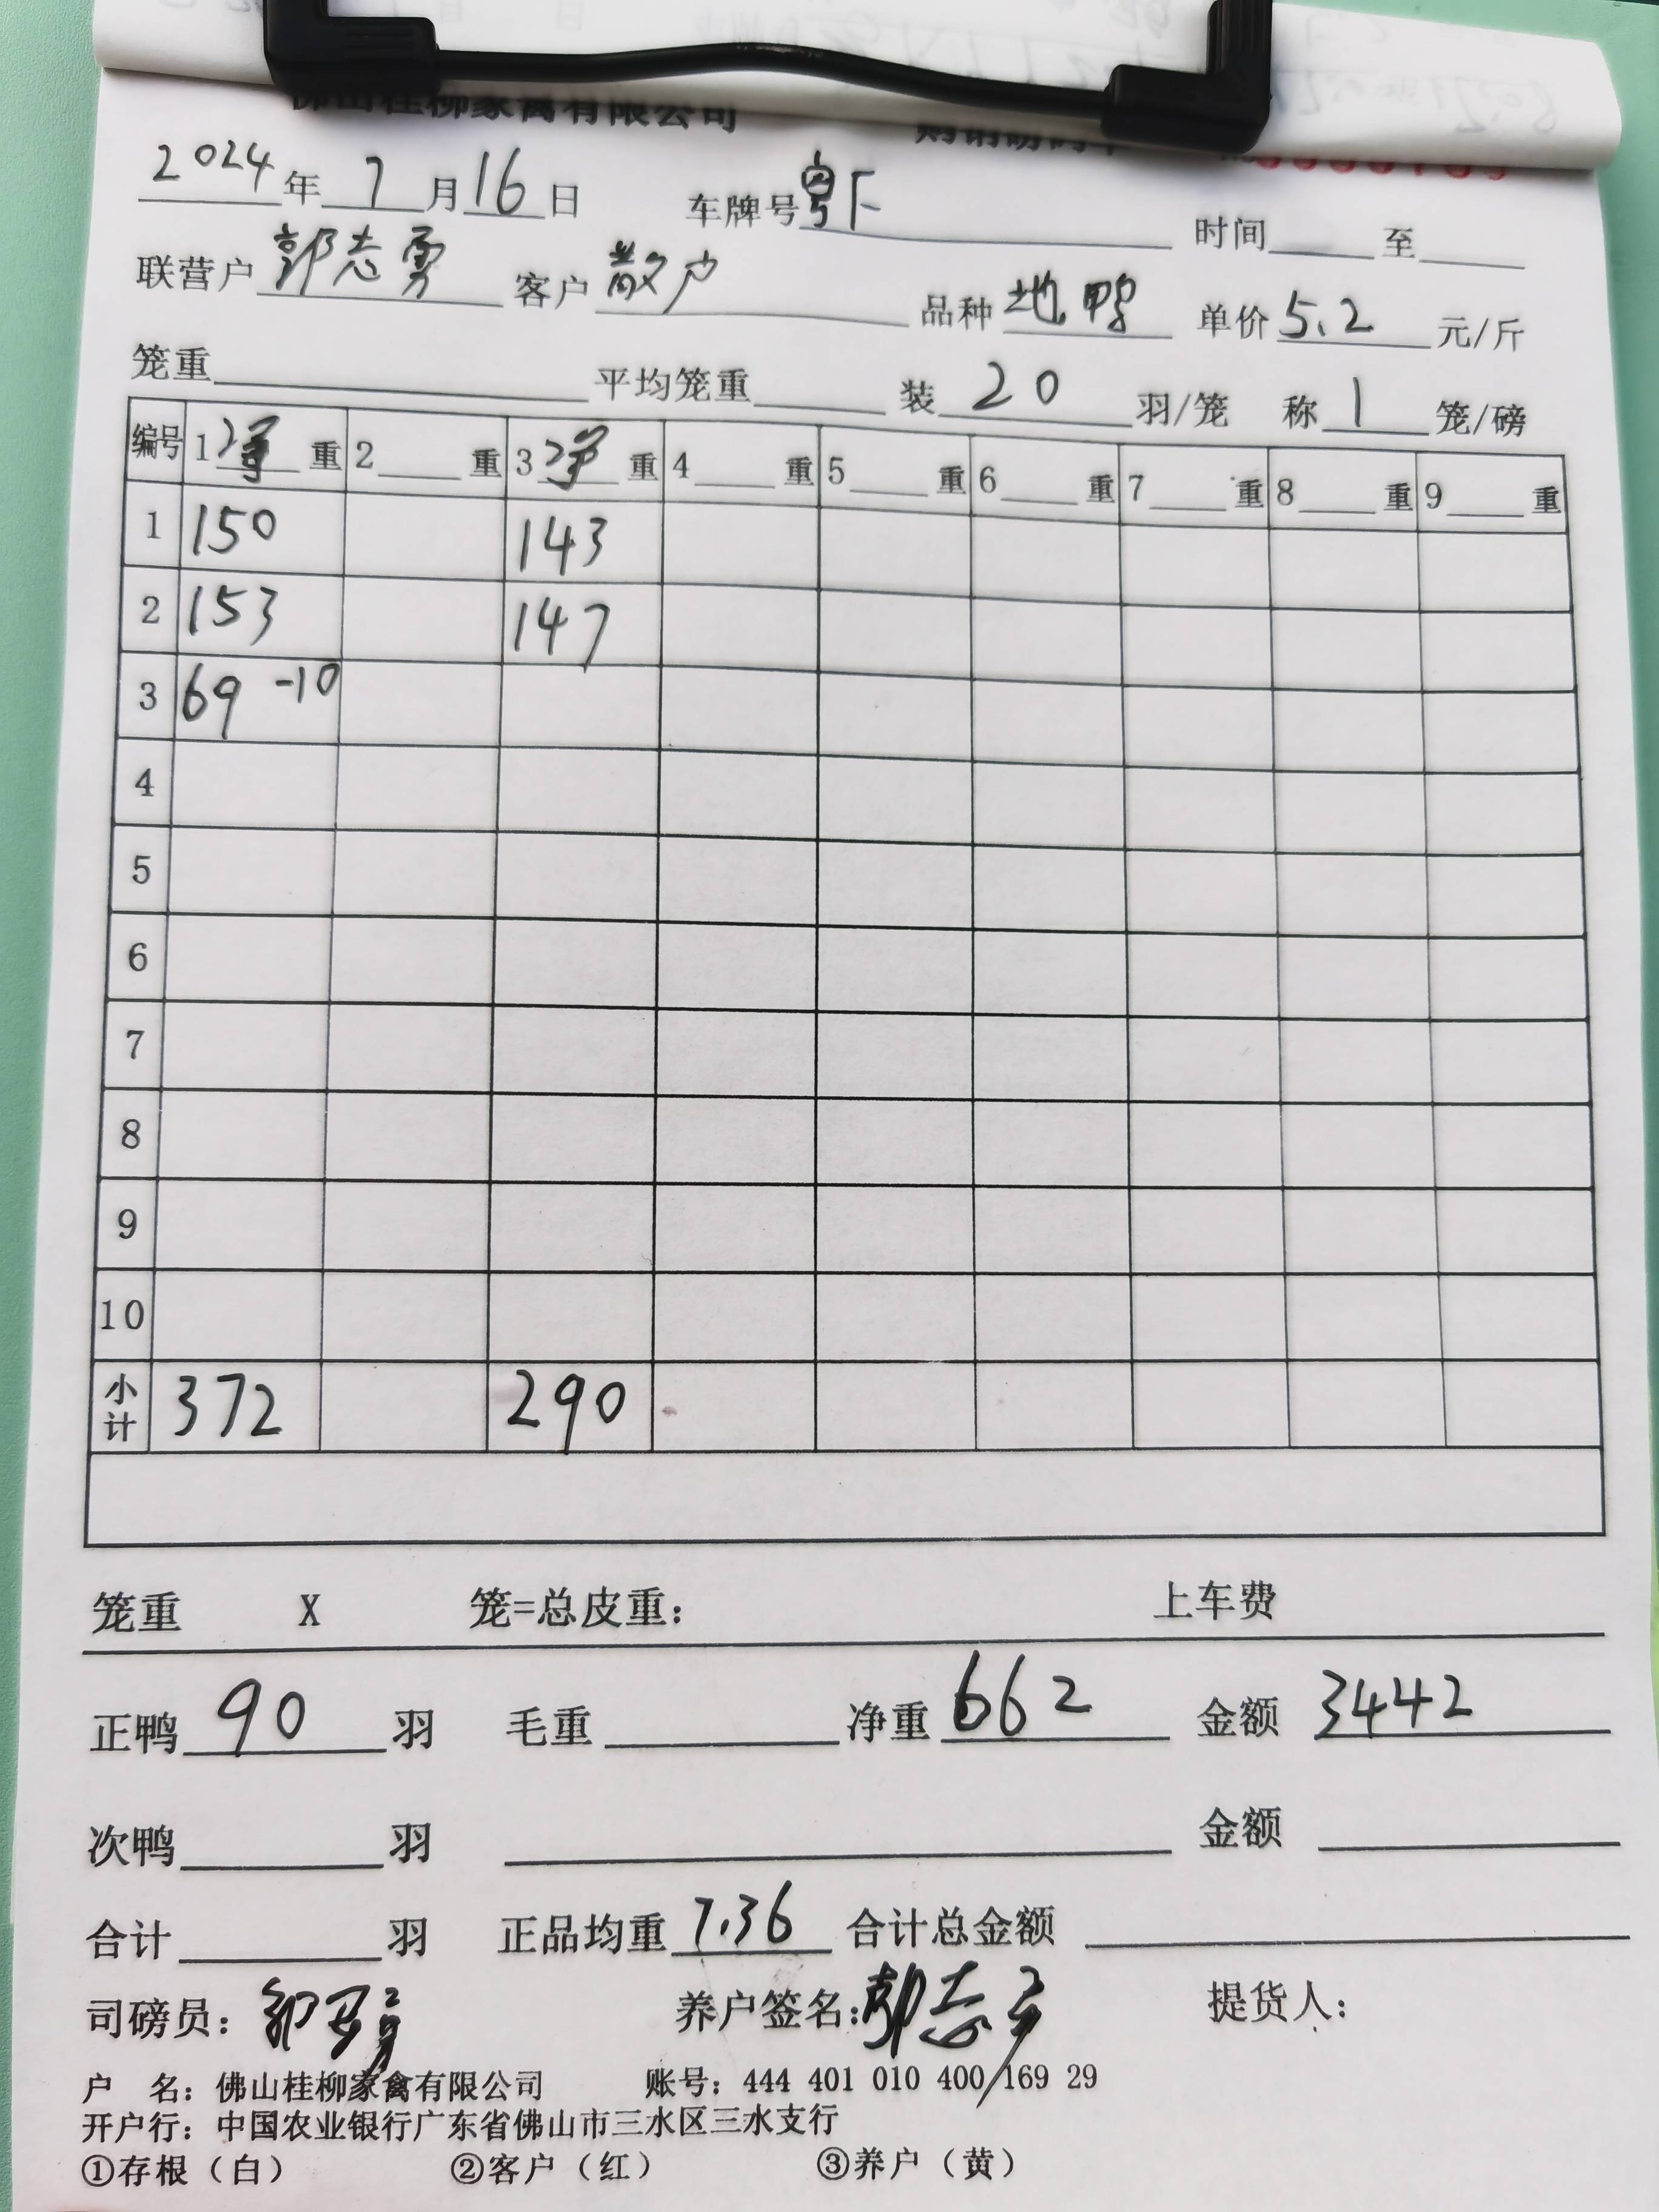 佛山桂柳家禽有限公司
2024年7月16日 车牌号粤F 时间 至
联营户 郭志勇 客户 散户 品种 地鸭 单价 5.2 元/斤
笼重 平均笼重 装 20 羽/笼 称 1 笼/磅
编号 1净重 2 重 3净重 4 重 5 重 6 重 7 重 8 重 9 重
1 150 143
2 153 147
3 69 -10
4
5
6
7
8
9
10
小计 372 290
笼重 X 笼=总皮重: 上车费
正鸭 90 羽 毛重 净重 662 金额 3442
次鸭 羽 金额
合计 羽 正品均重 7.36 合计总金额
司磅员: 养户签名:郭志勇 提货人:
户 名: 佛山桂柳家禽有限公司 账号: 444 401 010 400 169 29
开户行: 中国农业银行广东省佛山市三水区三水支行
①存根（白） ②客户（红） ③养户（黄）